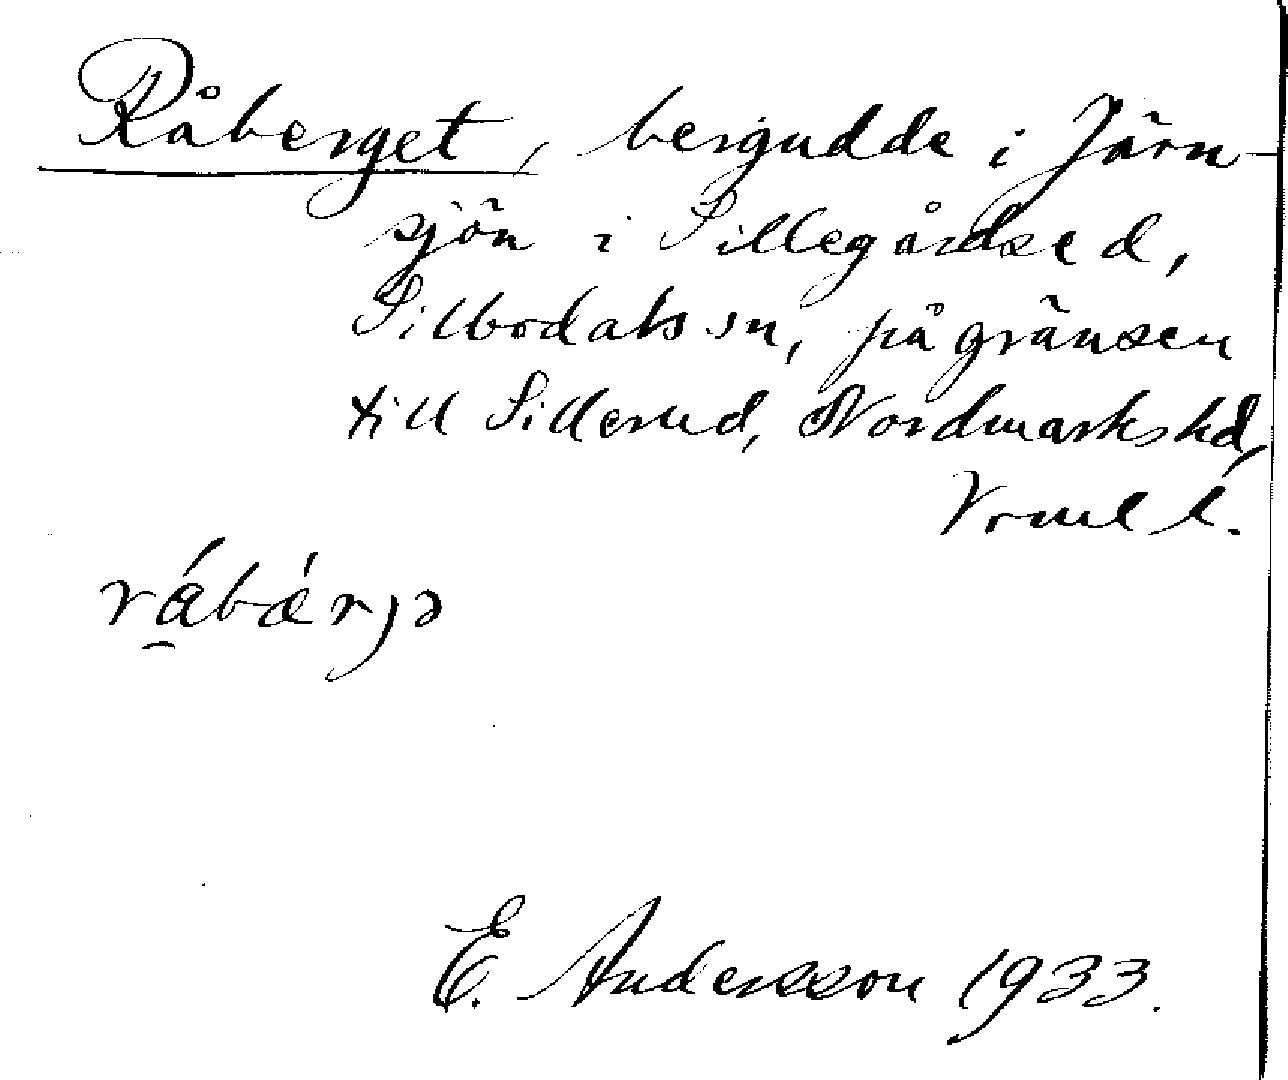 Råberget, bergudde i Järn-
sjön i Sillegårdsed,
Silbodals sn, på gränsen
till Sillerud, Nordmarks hd,
Vrml l.
råbærjə
E. Andersson 1933.